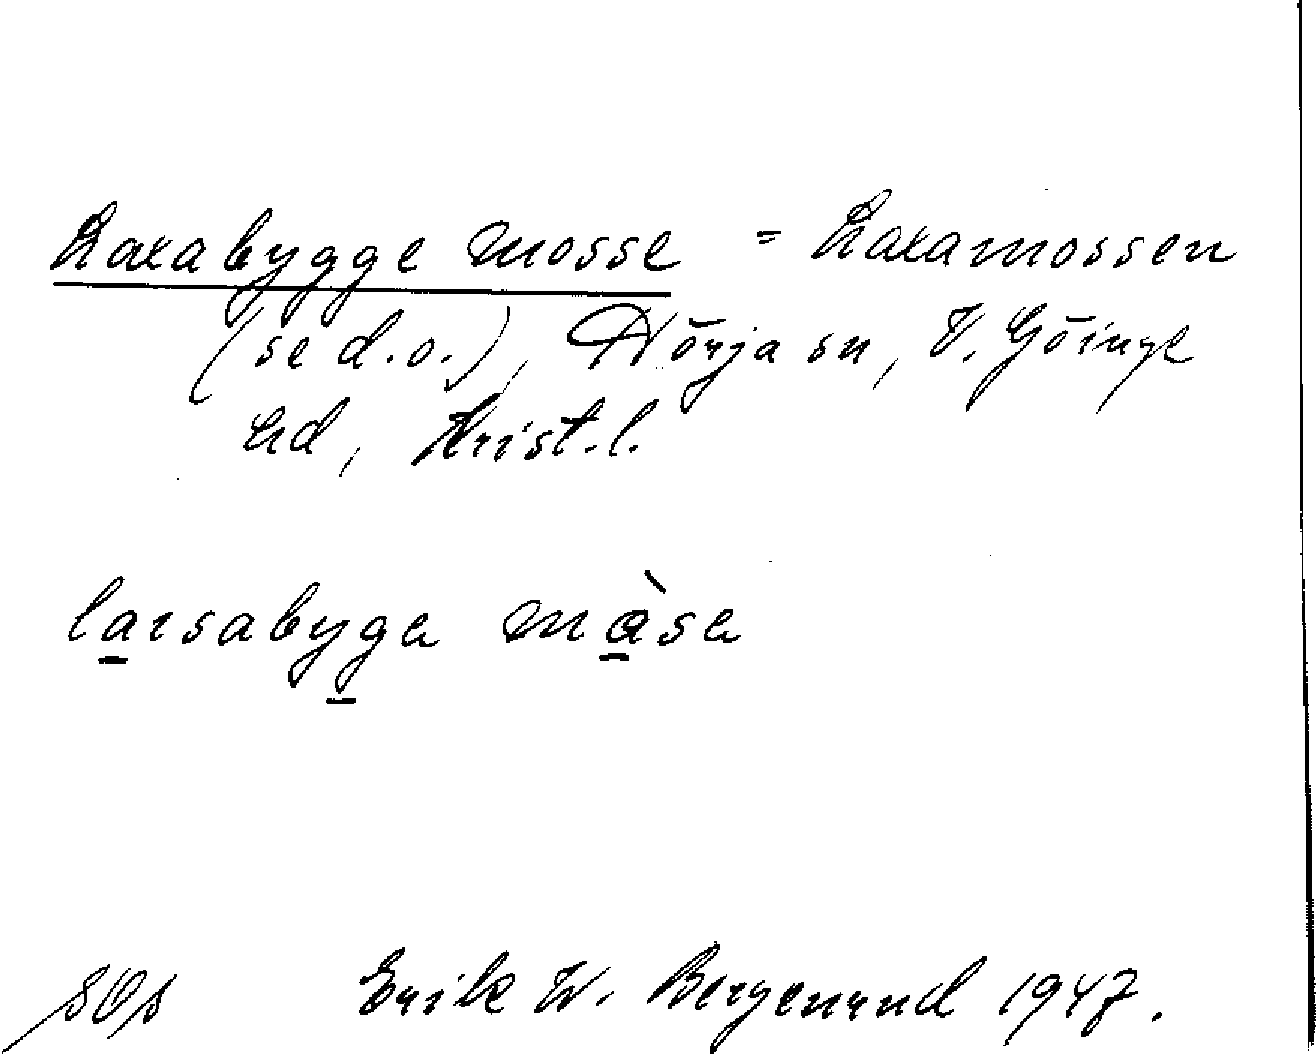 Laxabygge mosse = Laxamossen
(se d.o.), Nörja sn, V. Göinge
hd, Krist.l.
larsabyga måsa
Erik W. Bergenrud 1947.